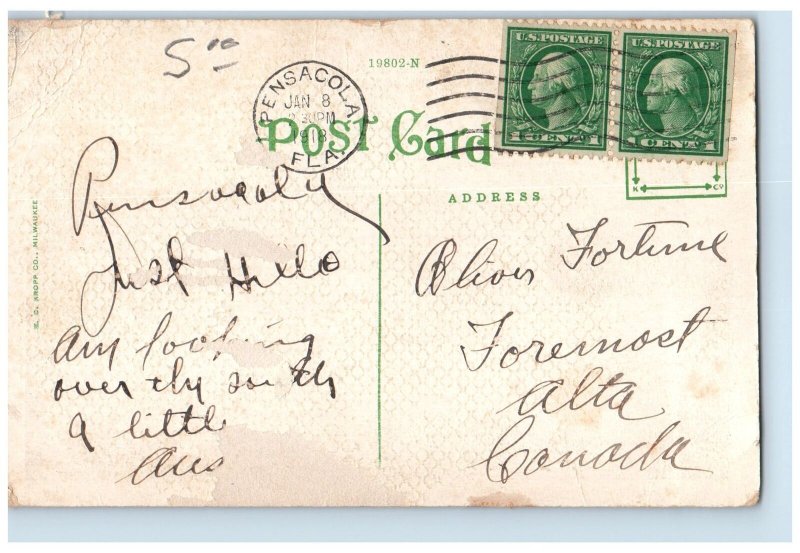 5.00
19802-N
PENSACOLA
JAN 8
30PM
1918
FLA.
U.S. POSTAGE
1 CENT 1
U.S. POSTAGE
1 CENT 1
POST CARD
K CO
ADDRESS
E. C. KROPP CO., MILWAUKEE
Pensacola
Just Hello
Am looking
over the south
a little
Oliver Fortune
Foremost
Alta
Canada